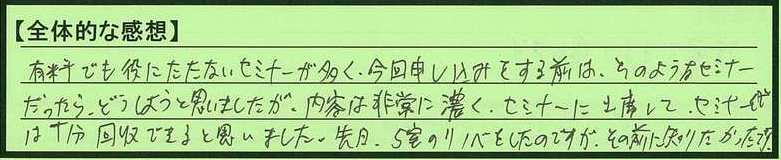 【全体的な感想】
有料でも役にたたないセミナーが多く、今回申し込みをする前は、そのようなセミナー
だったら、どうしようと思いましたが、内容は非常に濃く、セミナーに出席して、セミナー代
は十分回収できると思いました。先月、5室のリノベをしたのですが、その前に知りたかったです。